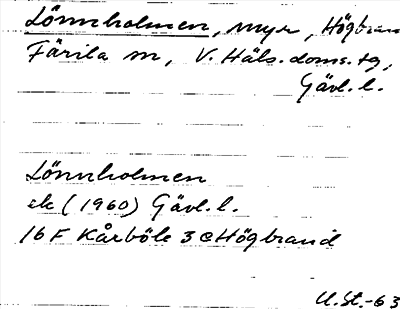 Lönnholmen, myr, Högbrand
Färila sn, V. Häls. doms. tg,
Gävl. l.
Lönnholmen
ek (1960) Gävl. l.
16 F Kårböle 3 c Högbrand
U.St.-63